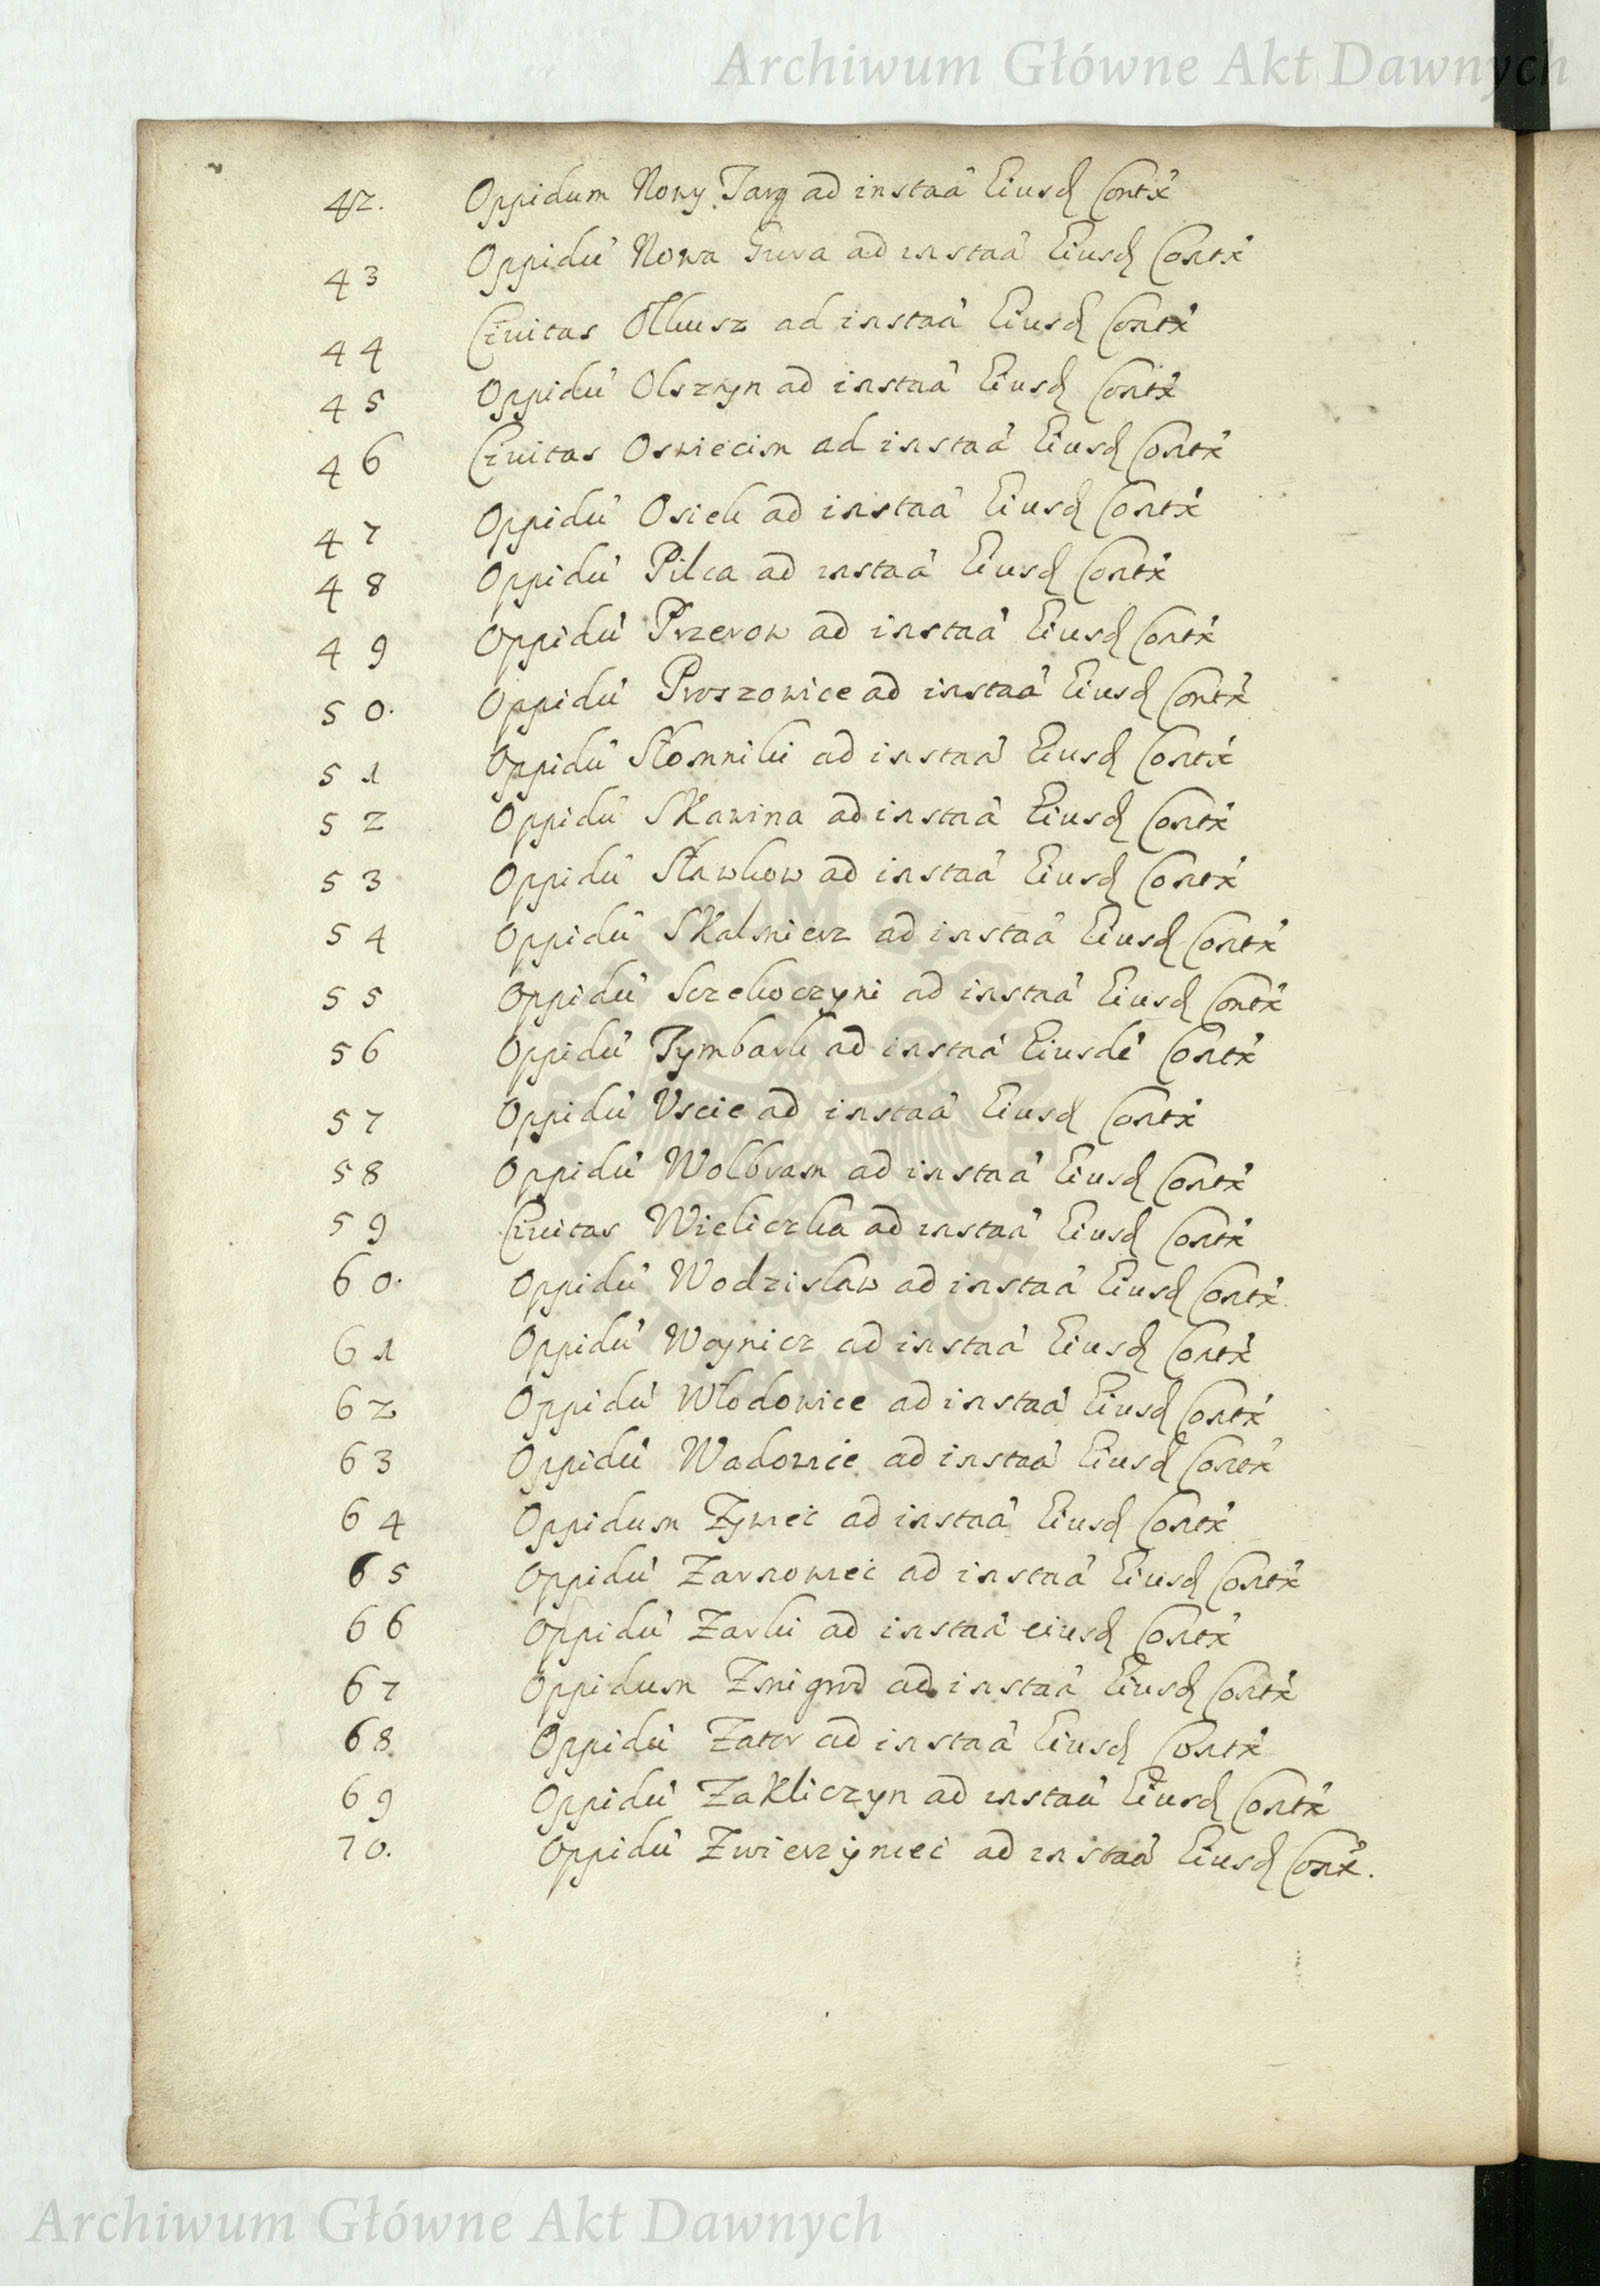 Archiwum Główne Akt Dawnych
42. Oppidum Nowy Targ ad instaã Eiusd Contx
43 Oppidũ Nowa Gura ad instaã Eiusd Contx
44 Civitas Olkusz ad instaã Eiusd Contx
45 Oppidũ Olsztyn ad instaã Eiusd Contx
46 Civitas Oswiecim ad instaã Eiusd Contx
47 Oppidũ Osiek ad instaã Eiusd Contx
48 Oppidũ Pilca ad instaã Eiusd Contx
49 Oppidũ Przerow ad instaã Eiusd Contx
50. Oppidũ Proszowice ad instaã Eiusd Contx
51 Oppidũ Słomniki ad instaã Eiusd Contx
52 Oppidũ SKawina ad instaã Eiusd Contx
53 Oppidũ Sławkow ad instaã Eiusd Contx
54 Oppidũ SKalmierz ad instaã Eiusd Contx
55 Oppidũ Sczekoczyni ad instaã Eiusd Contx
56 Oppidũ Tymbark ad instaã Eiusdẽ Contx
57 Oppidũ Vscie ad instaã Eiusd Contx
58 Oppidũ Wolbram ad instaã Eiusd Contx
59 Civitas Wieliczka ad instaã Eiusd Contx
60. Oppidũ Wodzisław ad instaã Eiusd Contx
61 Oppidũ Woynicz ad instaã Eiusd Contx
62 Oppidũ Włodowice ad instaã Eiusd Contx
63 Oppidũ Wadowice ad instaã Eiusd Contx
64 Oppidum Zywiec ad instaã Eiusd Contx
65 Oppidũ Zarnowiec ad instaã Eiusd Contx
66 Oppidũ Zarki ad instaã eiusd Contx
67 Oppidum Zmigrod ad instaã Eiusd Contx
68 Oppidũ Zator ad instaã Eiusd Contx
69 Oppidũ ZaKliczyn ad instaã Eiusd Contx
70. Oppidũ Zwierzyniec ad instaã Eiusd Contx.
Archiwum Główne Akt Dawnych